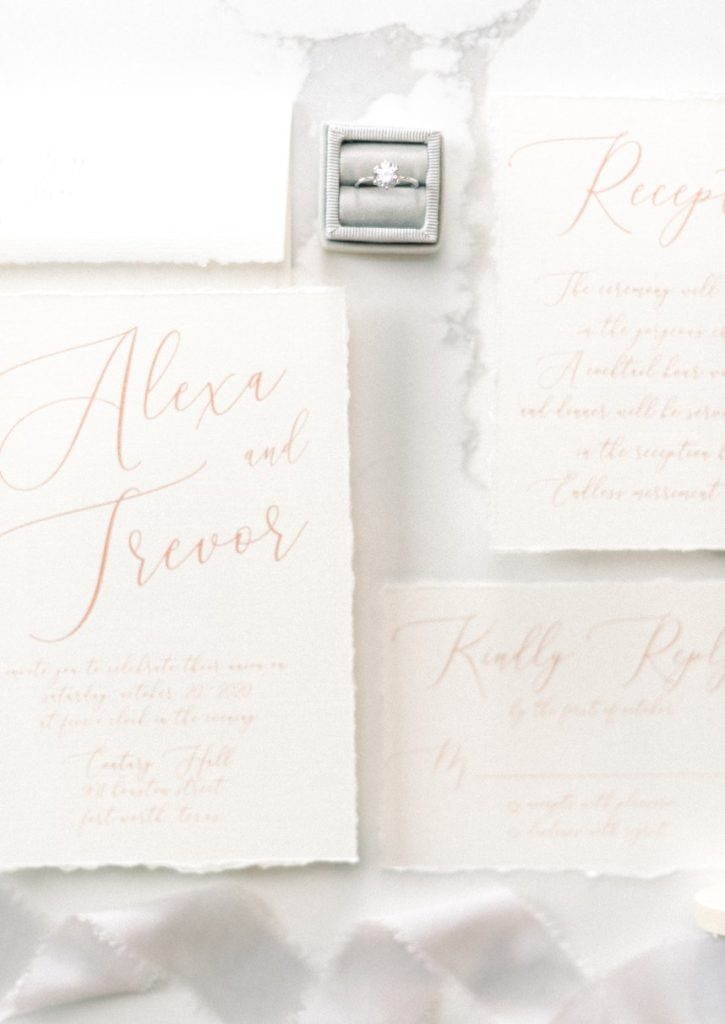 Alexa
and
Trevor
invite you to celebrate their union on
saturday, october 20 2020
at five o'clock in the evening
Century Hall
houston street
fort worth, texas
Recept
The ceremony will
in the gorgeous
A cocktail hour
and dinner will be
in the reception
Endless merriment
Kindly Reply
by the first of october
M
accepts with pleasure
declines with regret